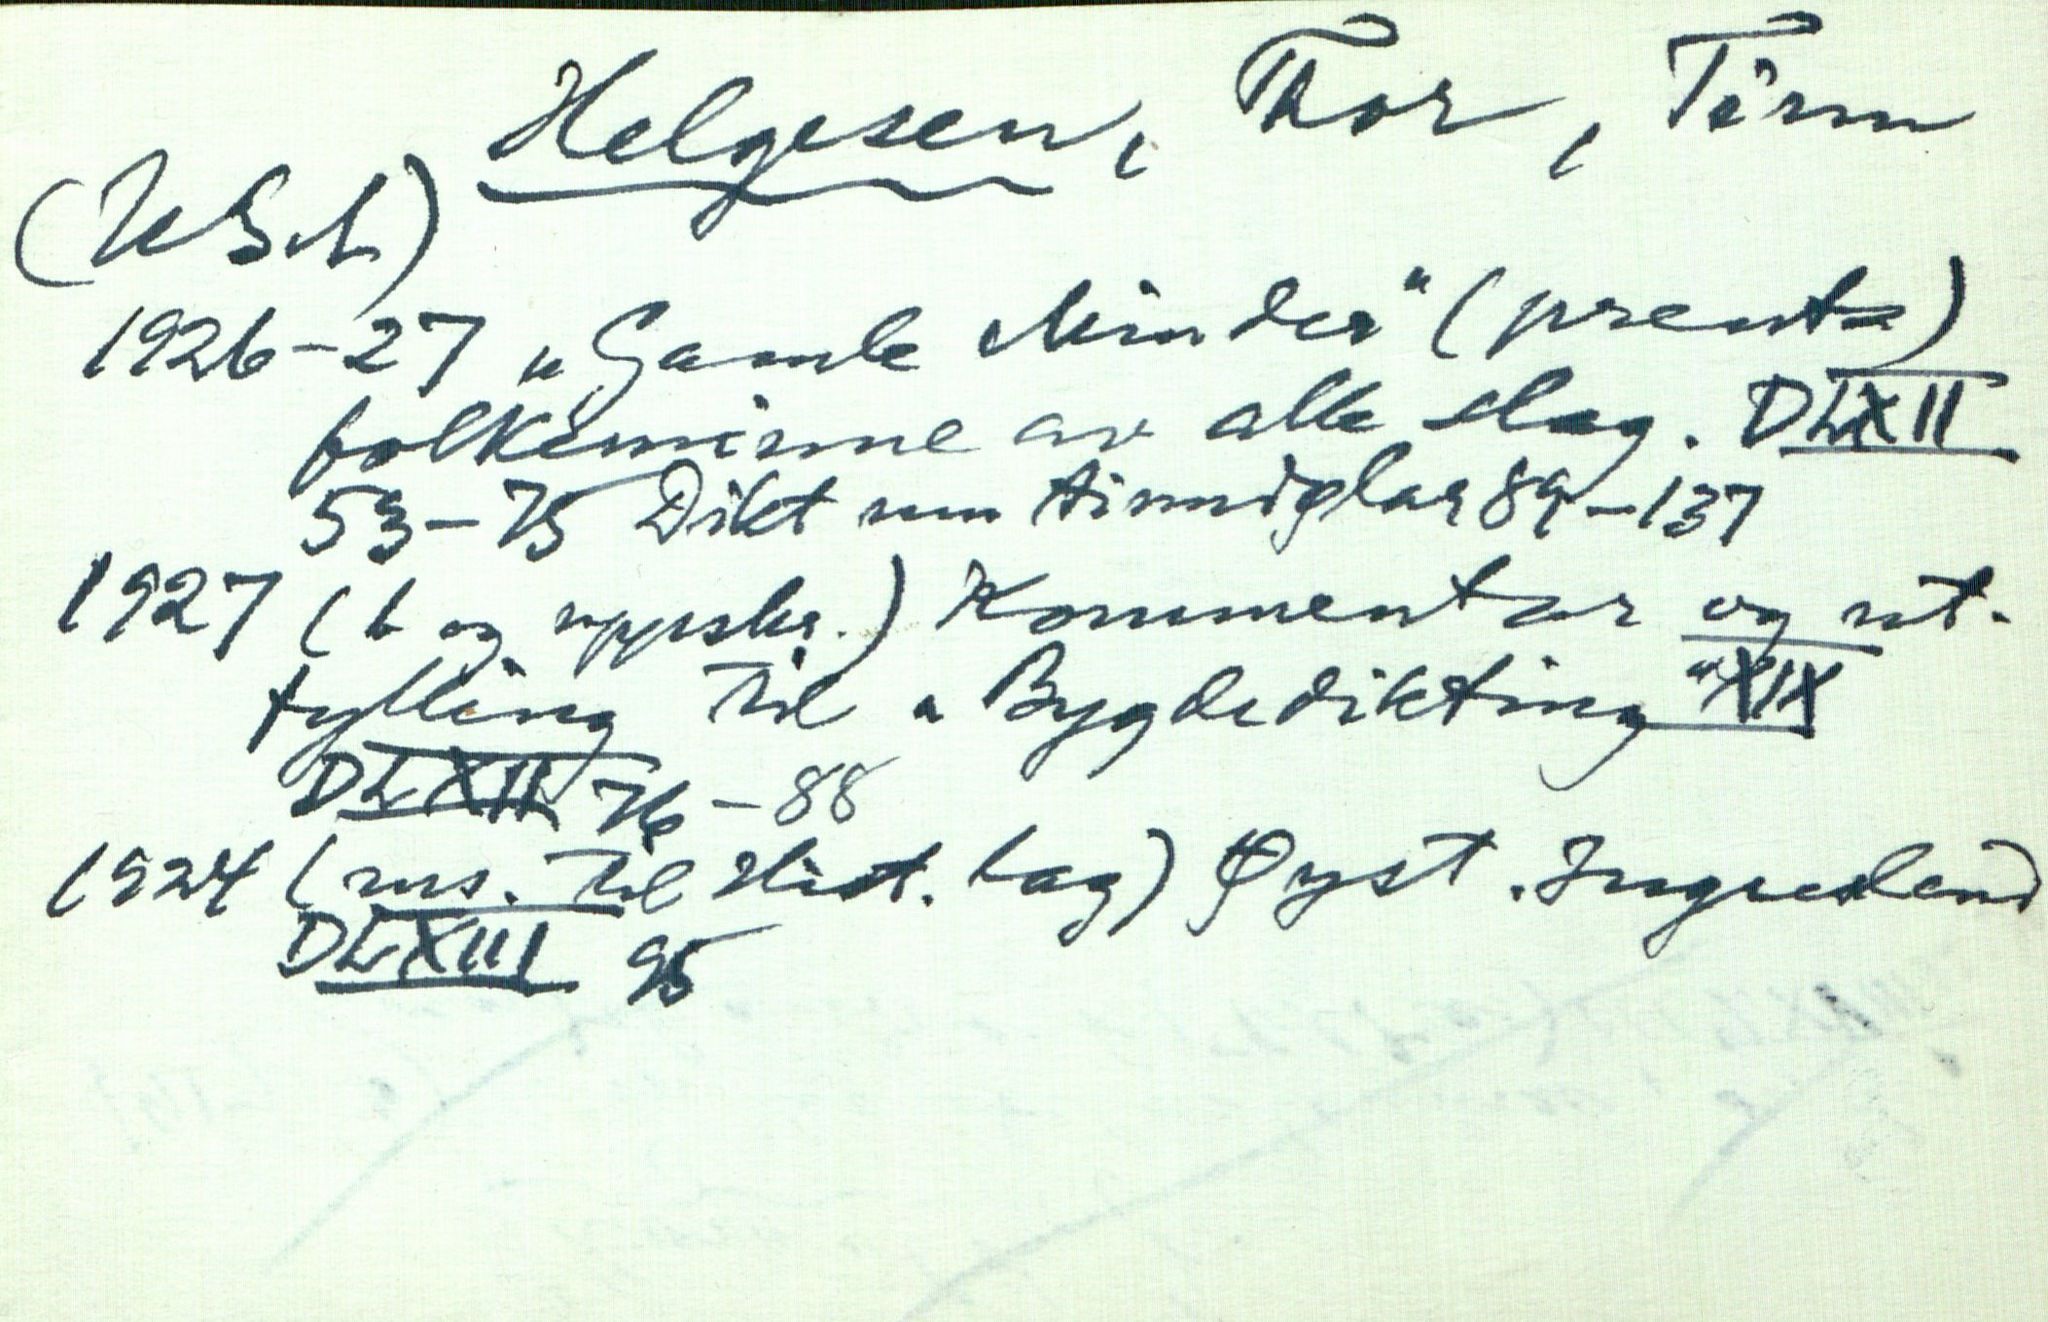 Helgesen, Thor, Tinn
1926-27 „Gamle Minder" (prenta)
folkeminne av alle slag. DLXII
53-75 Dikt um tinndølar 89-137
1927 (b og uppskr.) Kommentar og ut-
fylling til „Bygdedikting" XIX
DLXII 76-88
1924 (ms. til Hist. lag) Øyst. Ingresland
DLXIII 95